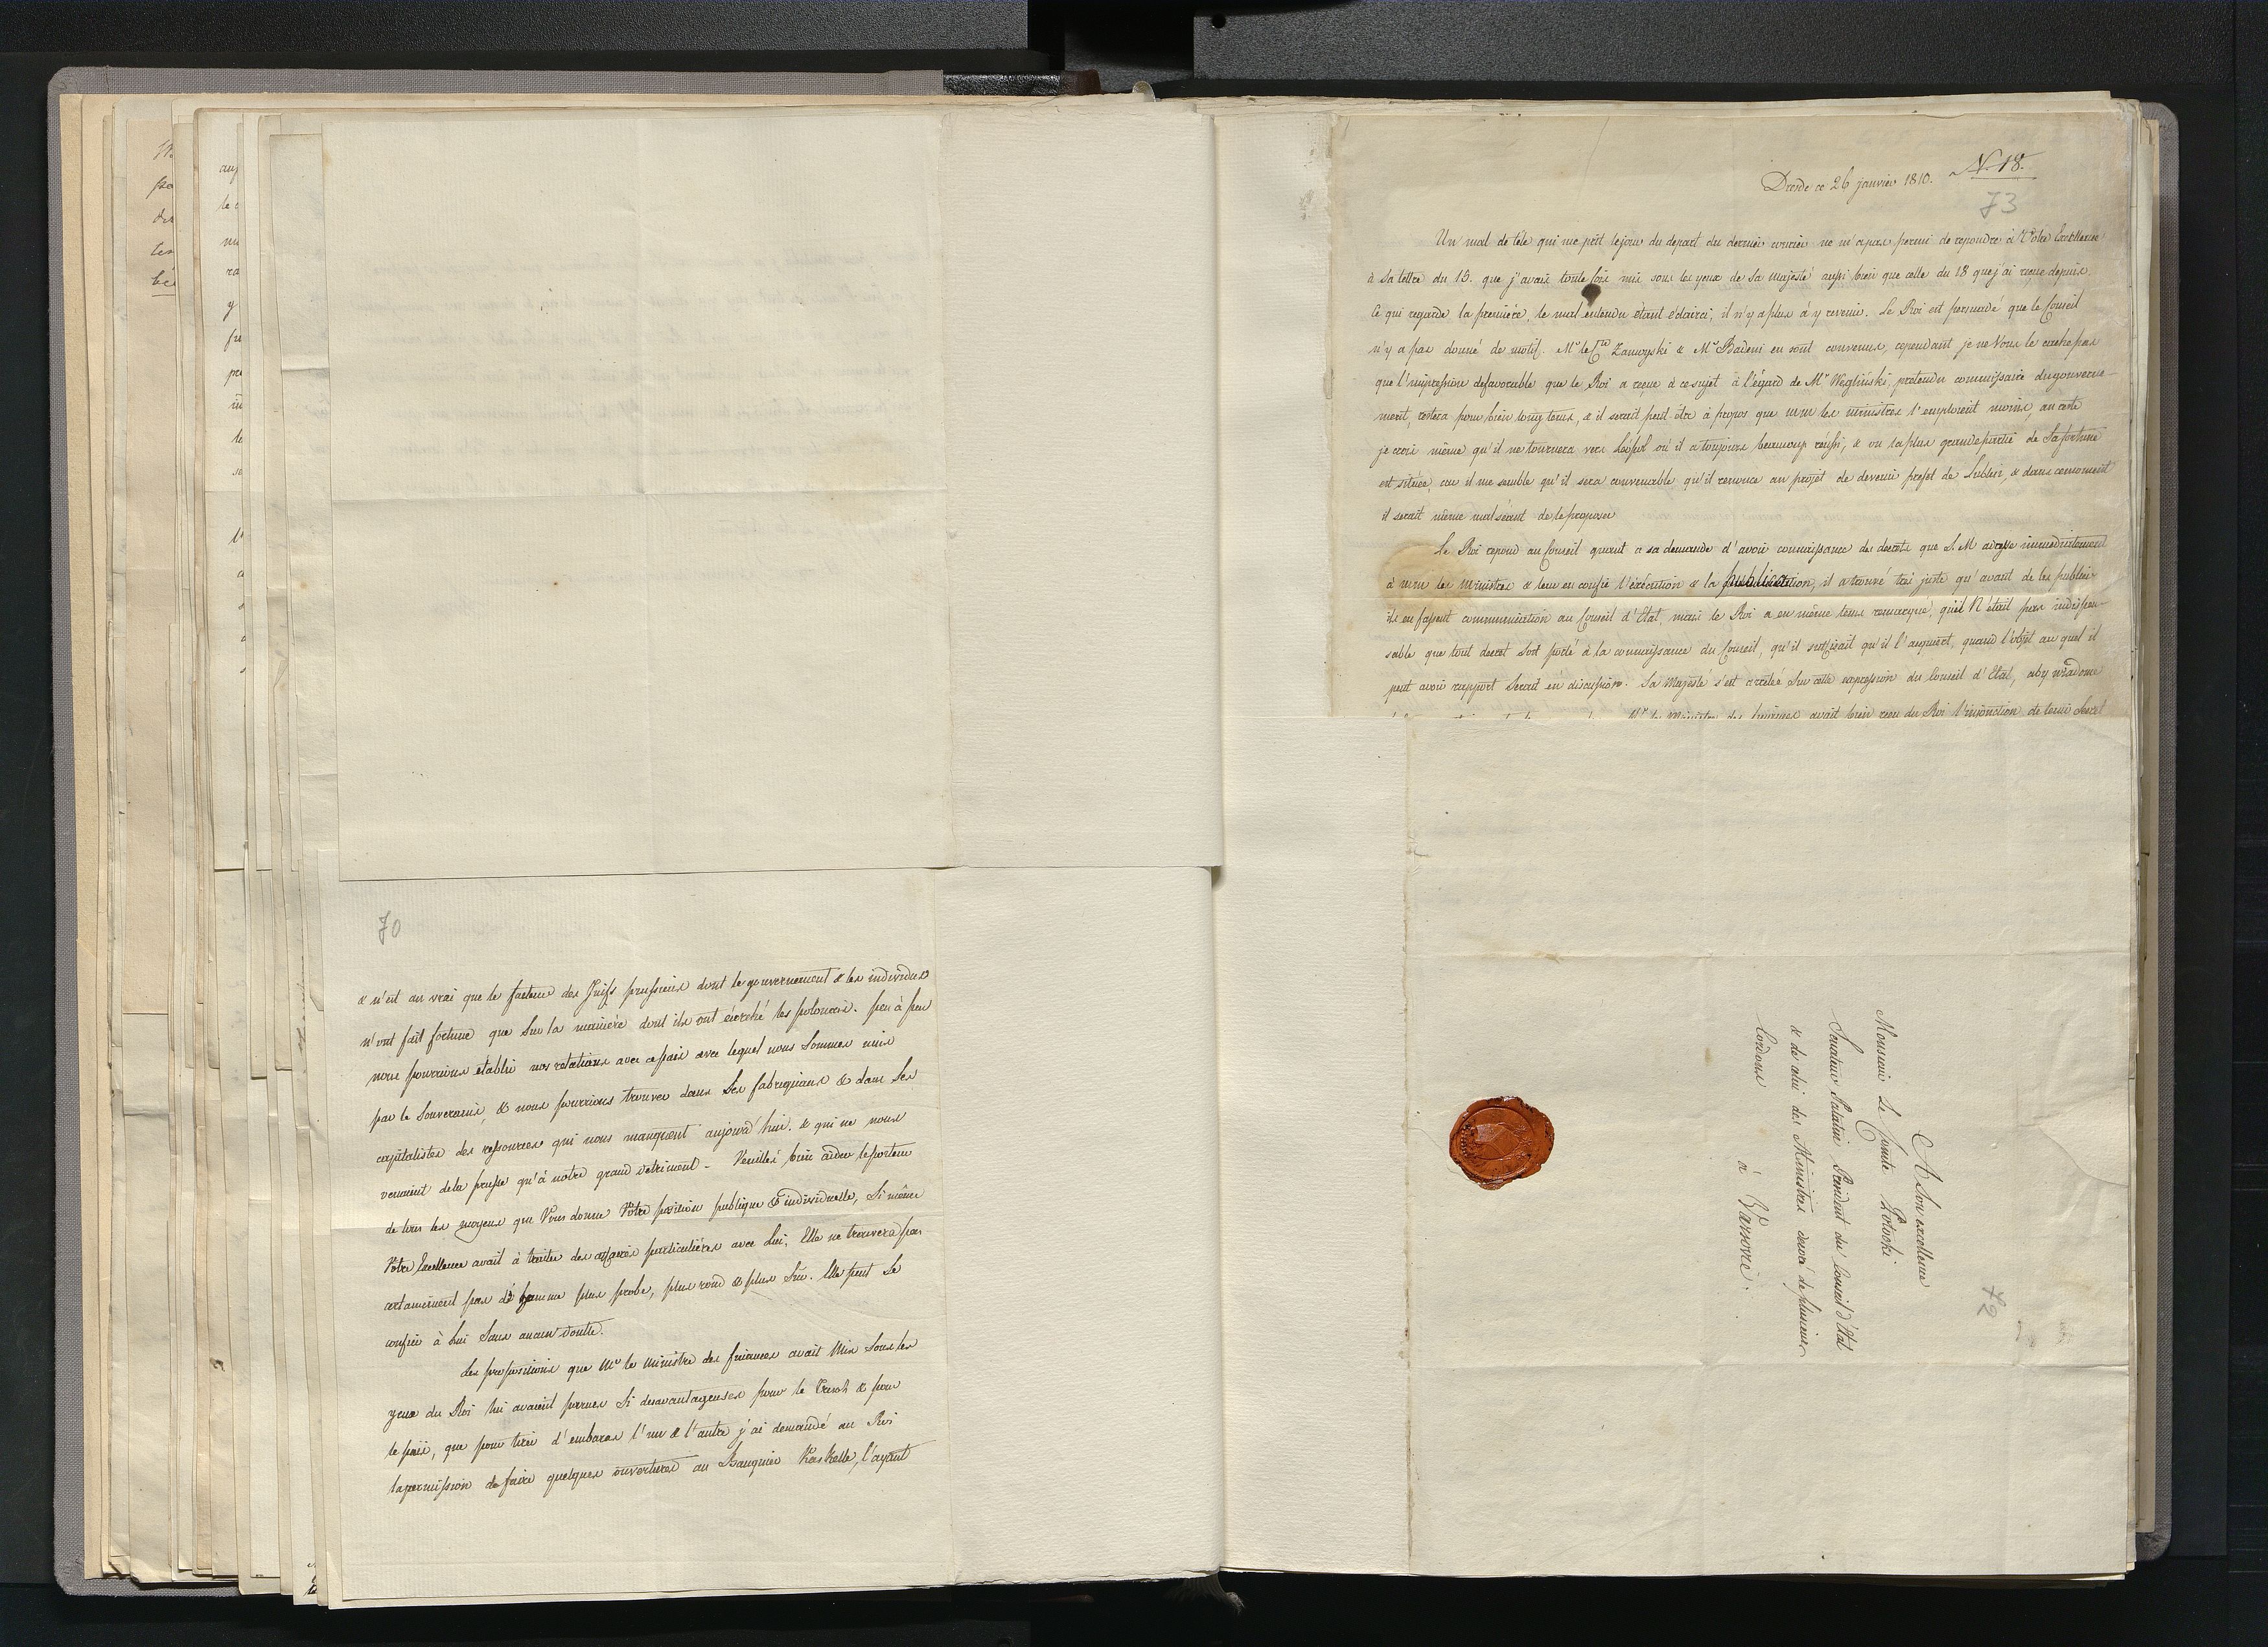 70
& n'est au vrai que le facteur des Juifs prussiens dont le gouvernement & les individus
n'ont fait fortune que sur la manière dont ils ont écorché les polonais. peu à peu
nous pourrions etablir nos relations avec ce païs avec lequel nous sommes unis
par le Souverain, & nous pourrions trouver dans ses fabriquans & dans ses
capitalistes des ressources qui nous manquent aujourd'hui. & qui ne nous
venaient de la prusse qu'à notre grand detriment - Veuillés bien aider le porteur
de tous les moyens que Vous donne Vôtre position publique & individuelle, Si même
Vôtre Excellence avait à traiter des affaires particulières avec Lui, Elle ne trouvera pas
certainement pas d'homme plus probe, plus rond & plus Sûr. Elle peut se
confier à lui Sans aucun doutte.
Les propositions que Mr le Ministre des finances avait Mis Sous les
yeux du Roi lui avaient parues Si desavantageuses pour le Tresor & pour
le païs, que pour tirer d'embaras l'un & l'autre j'ai demandé au Roi
la permission de faire quelques ouvertures au Banquier Kaskelle, l'ayant
N. 18.
Dresde ce 26 janvier 1810.
73
Un mal de tête qui me prit le jour du depart du dernier courier ne m'a pas permi de repondre à Vôtre Excellence
à sa lettre du 15. que j'avais toute fois mis sous les yeux de Sa Majesté aussi bien que celle du 18 que j'ai reçue depuis.
Ce qui regarde la première, le mal entendu étant éclairci, il n'y a plus à y revenir. Le Roi est persuadé que le Conseil
n'y a pas donné de motif. Mr le Cte Zamoyski & Mr Badeni en sont convenus, cependant je ne Vous le cache pas
que l'impression defavorable que le Roi a reçue à ce sujet à l'égard de Mr Węgliński, pretendu commissaire du gouverne-
ment, restera pour bien long tems, & il serait peut-être à propos que MM les ministres l'emploient moins, au reste
je crois même qu'il ne tournera vers Léopol où il a toujours beaucoup réussi, & ou la plus grande partie de Sa fortune
est située, car il me semble qu'il sera convenable qu'il renonce au projet de devenir prefet de Lublin, & dans ce moment
il serait même malséant de le proposer
Le Roi repond au Conseil quant a sa demande d'avoir connaissance des decrets que S. M adresse immediatement
à MM les Ministres & leur en confie l'éxécution & la publication, il a trouvé très juste qu'avant de les publier
ils en fassent communication au Conseil d'Etat, mais le Roi a en même tems remarqué, qu'il N'était pas indispen-
sable que tout decret Soit porté à la connaissance du Conseil, qu'il suffisait qu'il l'acquiert, quand l'objet au quel il
peut avoir rapport Serait en discussion. Sa Majesté s'est arretée Sur cette expression du Conseil d'Etat, aby wiadome
Mr le Ministre des finances avait bien reçu du Roi l'injonction de tenir Secret
72
A Son excellence
Monsieur Le Comte Potocki
Senateur Palatin President du Conseil d'Etat
& de celui des Ministres decoré de plusieurs
Cordons
à Varsovie.